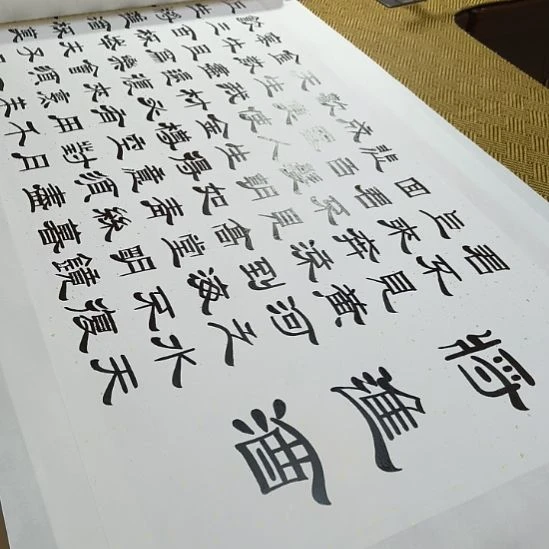 將進酒
君不見黃河之水天
上來奔流到海不復
回君不見高堂明鏡
悲白髮朝如青絲暮
成雪人生得意須盡
歡莫使金樽空對月
天生我材必有用
金散盡還復來
宰牛且為樂會須